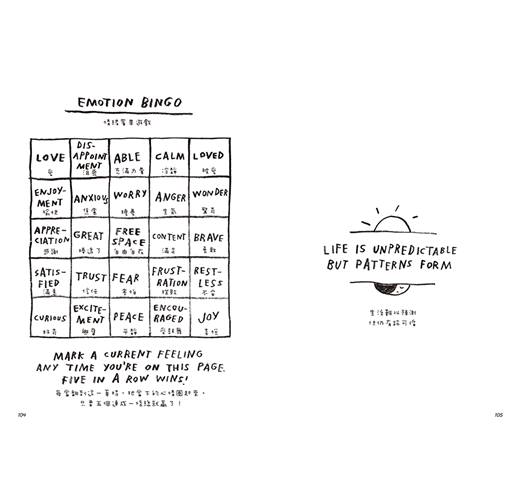 EMOTION BINGO
情緒賓果遊戲
LOVE
愛
DIS-
APPOINT
MENT
沮喪
ABLE
充滿力量
CALM
冷靜
LOVED
被愛
ENJOY-
MENT
愉快
ANXIOUS
焦慮
WORRY
擔憂
ANGER
生氣
WONDER
驚奇
APPRE-
CIATION
感謝
GREAT
棒透了
FREE
SPACE
自由自在
CONTENT
滿足
BRAVE
勇敢
SATIS-
FIED
滿意
TRUST
信任
FEAR
害怕
FRUST-
RATION
挫敗
REST-
LESS
不安
CURIOUS
好奇
EXCITE-
MENT
興奮
PEACE
平靜
ENCOU-
RAGED
受鼓舞
JOY
喜悅
MARK A CURRENT FEELING
ANY TIME YOU'RE ON THIS PAGE.
FIVE IN A ROW WINS!
每當翻到這一頁時,把當下的心情圈起來,
只要五個連成一條線就贏了!
104
LIFE IS UNPREDICTABLE
BUT PATTERNS FORM
生活難以預測
但仍有跡可循
105